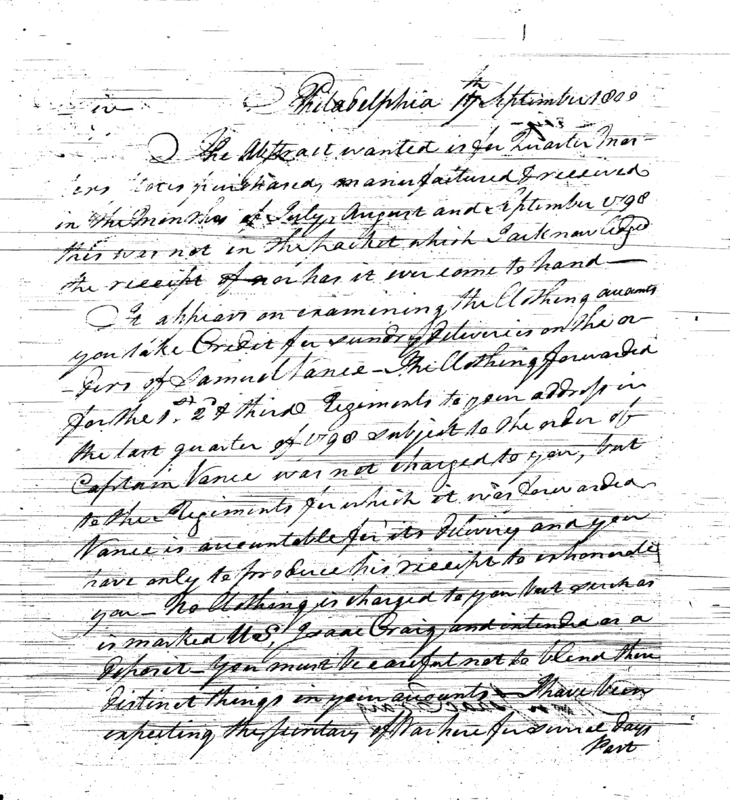 Philadelphia 17th September 1800
The Abstract wanted is for Quarter Mas-
ters Stores purchased, manufactured & received
in the Months of July, August and September 1798
this was not in the packet which I acknowledged
the receipt of nor has it ever come to hand —
It appears on examining the Clothing accounts
you take Credit for sundry deliveries on the or-
-ders of Samuel Vance — The Clothing forwarded
for the 1st. 2d & third Regiments to your address in
the last quarter of 1798 subject to the order of
Captain Vance was not charged to you, but
to the Regiments for which it was forwarded
Vance is accountable for its delivery and you
have only to produce his receipt to exhonorate
you — No Clothing is charged to you but such as
is marked U S, Isaac Craig, and intended as a
deposit — You must be careful not to blend these
distinct things in your accounts — I have been
expecting the Secretary of War here for several days
Past